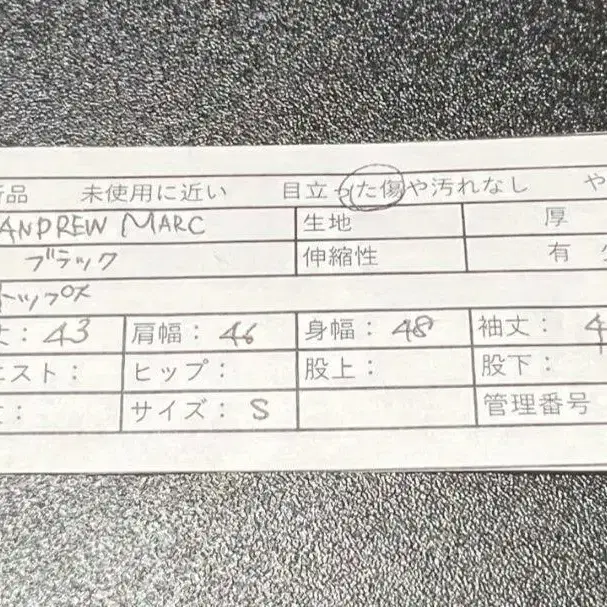 品 未使用に近い 目立った傷や汚れなし や
ANDREW MARC 生地 厚
ブラック 伸縮性 有
トップス
丈：43 肩幅：46 身幅：48 袖丈：4
エスト： ヒップ： 股上： 股下：
： サイズ：S 管理番号